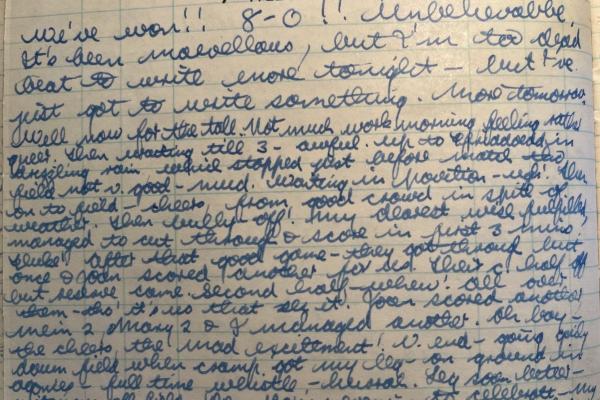 We've won!! 8-0!! Unbelievable,
It's been marvellous, but I'm too dead
beat to write more tonight - but I've
just got to write something. More tomorrow.
Well now for the tale. Not much work morning feeling rather
queer. Then waiting till 3 - awful. Up to in
drizzling rain which stopped just before match tho'
field not v. good - mud. Waiting in Pavilion - ugh! Then
on to field - cheers from good crowd in spite of
weather. Then bullied off! My dearest wish fulfilled,
managed to cut through & score in first 3 mins
after that good game - they got through but
once & Joan scored another for us. Their c. half off
but reserve came. Second half - whew! all over
them - tho' it's us that say it. Joan scored another
Mein 2 Mary 2 & I managed another. Oh boy -
the cheers, the mad excitement! V. end - going gaily
down field when cramp got my leg - on ground in
agonies - full time whistle - hurrah. Leg soon better -
all to celebrate - my